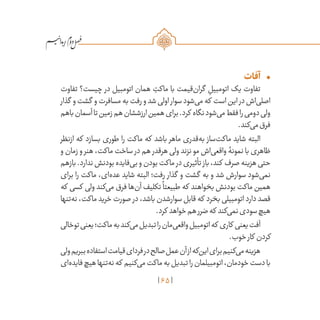 • آفات
تفاوت یک اتومبیلِ گران‌قیمت با ماکتِ همان اتومبیل در چیست؟ تفاوت
اصلی‌اش در این است که می‌شود سوار اولی شد و رفت به مسافرت و گشت و گذار
ولی دومی را فقط می‌شود نگاه کرد. برای همین ارزششان هم زمین تا آسمان باهم
فرق می‌کند.
البته شاید ماکت‌ساز به‌قدری ماهر باشد که ماکت را طوری بسازد که ازنظر
ظاهری با نمونهٔ واقعی‌اش مو نزند ولی هرقدر هم در ساخت ماکت، هنر و زمان و
حتی هزینه صرف کند، باز تأثیری در ماکت بودن و بی‌فایده بودنش ندارد. بازهم
نمی‌شود سوارش شد و به گشت و گذار رفت؛ البته شاید عده‌ای، ماکت را برای
همین ماکت بودنش بخواهند که طبیعتاً تکلیف آن‌ها فرق می‌کند ولی کسی که
قصد دارد اتومبیلی بخرد که قابل سوارشدن باشد، در صورت خرید ماکت، نه‌تنها
هیچ سودی نمی‌کند که ضرر هم خواهد کرد.
آفت یعنی کاری که اتومبیل واقعی‌مان را تبدیل می‌کند به ماکت؛ یعنی توخالی
کردن کار خوب.
هزینه می‌کنیم برای این‌که از آن عمل صالح در فردای قیامت استفاده ببریم ولی
با دست خودمان، اتومبیلمان را تبدیل به ماکت می‌کنیم که نه‌تنها هیچ فایده‌ای
|۶۵|